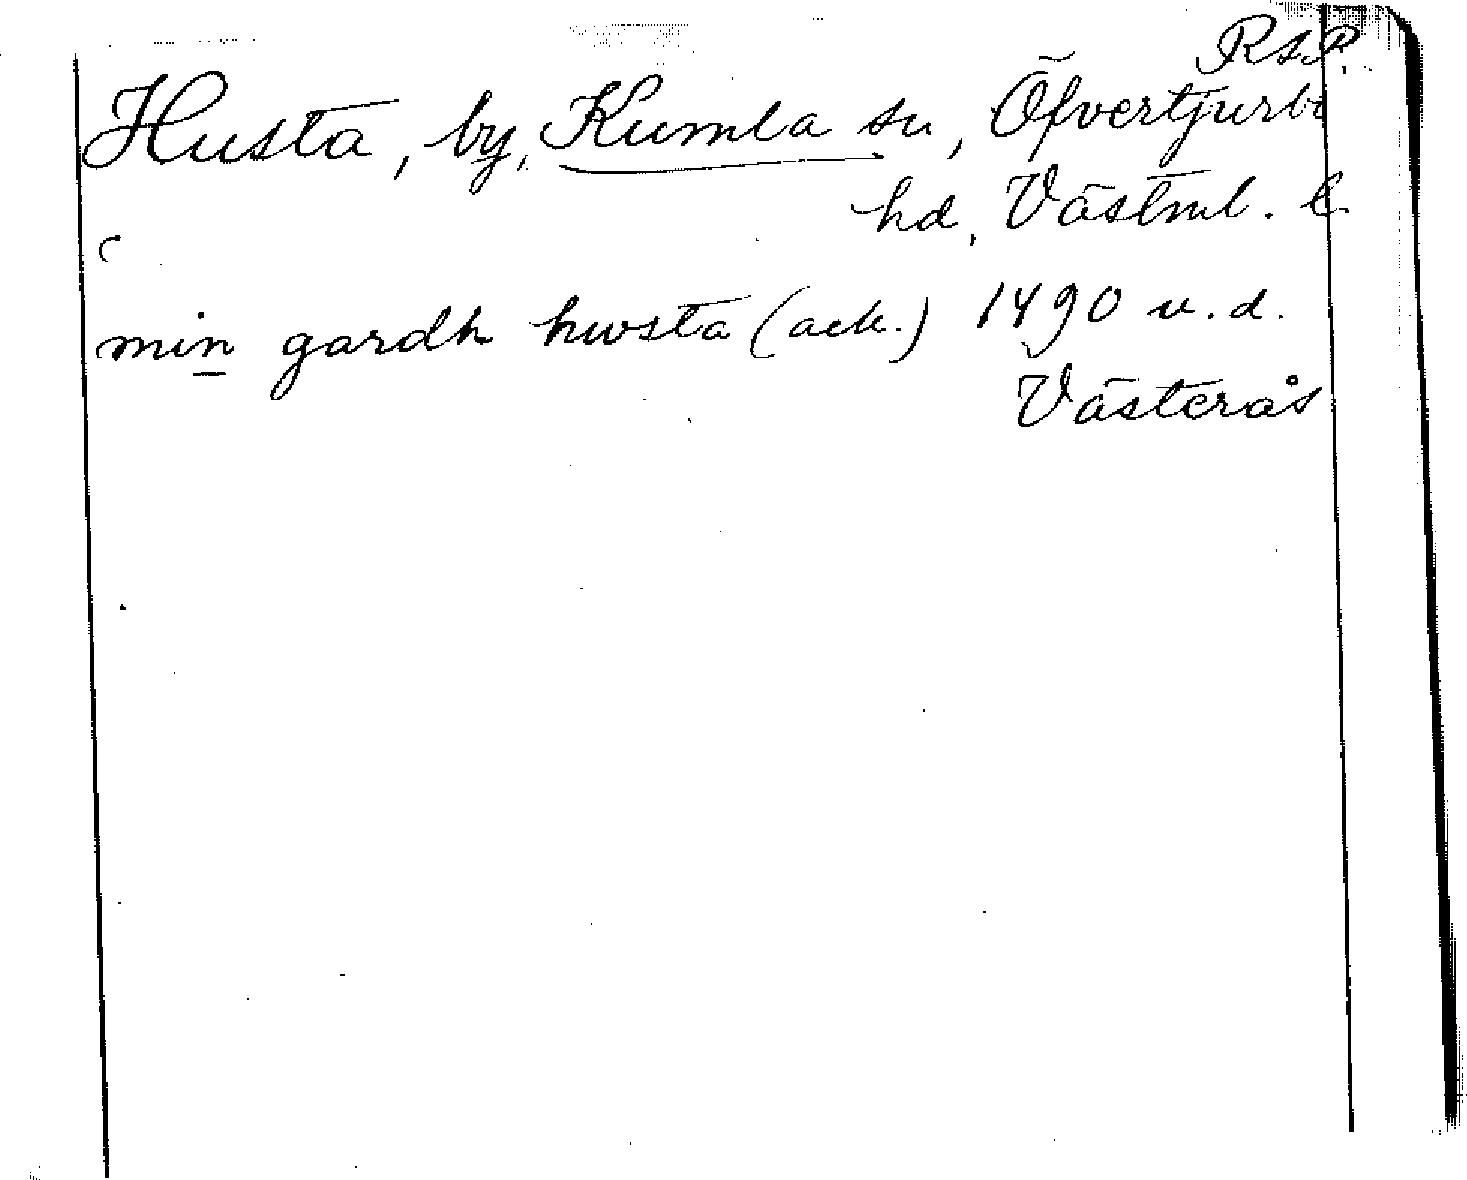 RAP.
Husta, by, Kumla sn, Öfvertjurbo
hd, Västml. l.
min gardh hwsta (ack.) 1490 u.d.
Västerås